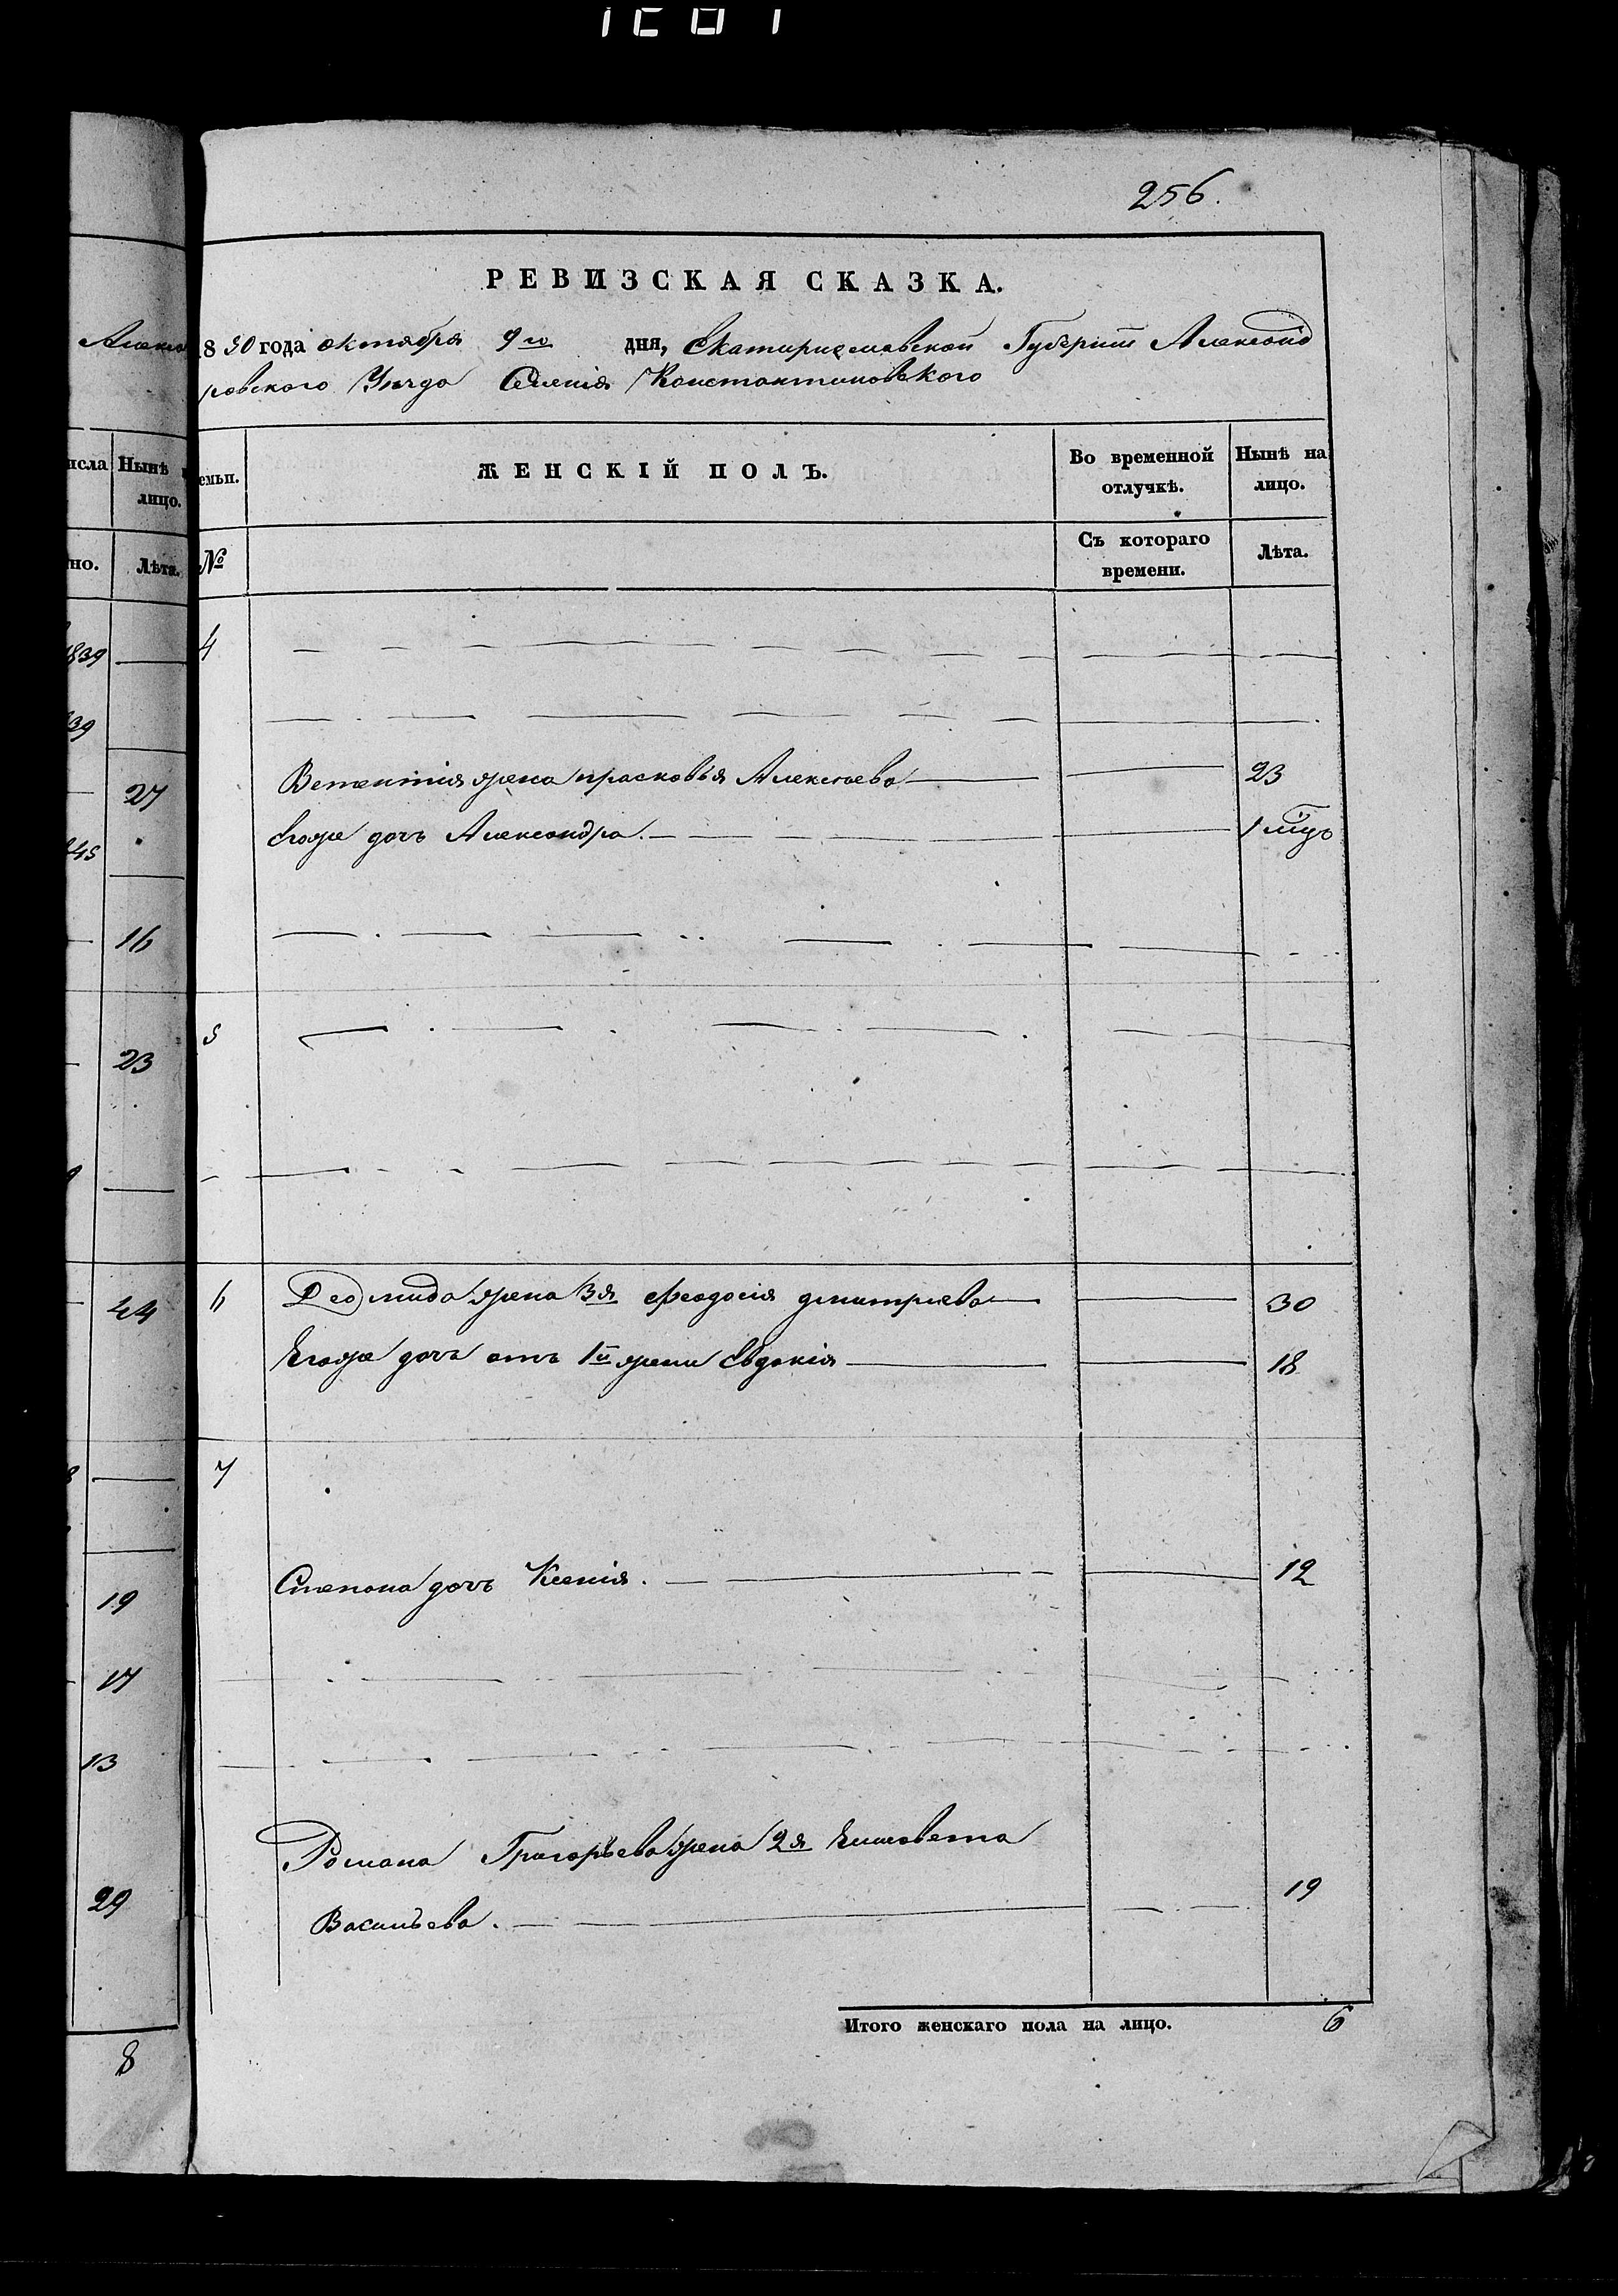 256.
РЕВИЗСКАЯ СКАЗКА.
1850 года октября 9го дня, Екатиринославской Губернiи Александ
ровского Уезда Селенiя Константиновского
Алекса
исла Нынѣ
лицо.
емьи. ЖЕНСКIЙ ПОЛЪ. Во временной отлучкѣ. Нынѣ на лицо.
но. Лѣта. № Съ котораго времени. Лѣта.
1839 4
39
27 жена прасковья Алексѣева 23
45 Егоже дочъ Александра. 1 мцъ
16
23 5
44 6 жена 3я феодосiя дмитриева 30
Егоже дочъ отъ 1й жени Евдокiя 18
8 7
19 Степана дочъ Ксенiя. 12
17
13
Романа Григорьева жена 2я Елисовета
29 Васильева. 19
Итого женскаго пола на лицо. 6
8